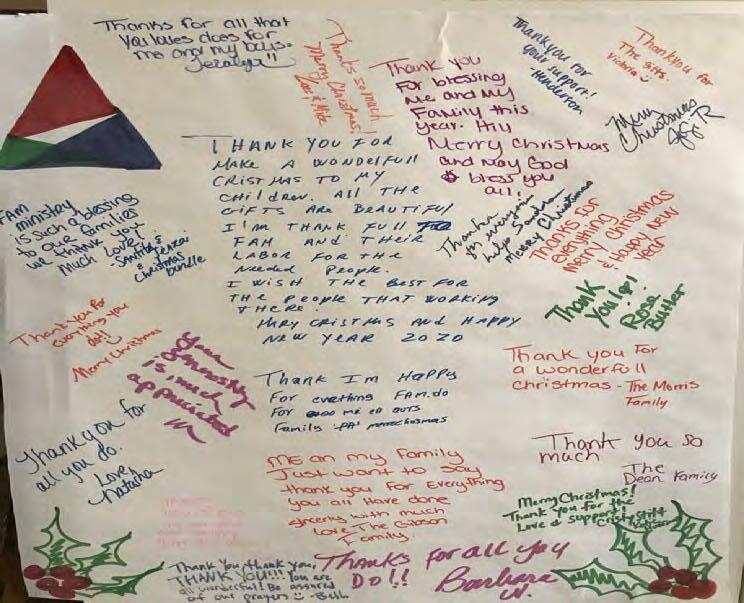 Thanks for all that
you
does for
me and my boys.
Thanks so much
Merry Christmas!
Thank you
For blessing
me and my
Family this
year.
Merry Christmas
and may God
bless you
all!
Thankyou for
your support!
Henderson
Thankyou for
The gifts
Victoria
Merry
Christmas
THANK YOU FOR
MAKE A WONDELFULL
CRISTMAS TO MY
CHILDREN. ALL THE
GIFTS ARE BEAUTIFUL
I'M THANK FULL
FAM AND THEIR
LABOR FOR THE
NEEDED PEOPLE.
I WISH THE BEST FOR
THE PEOPLE THAT WORKING
THERE.
MARY CRISTMAS AND HAPPY
NEW YEAR 2020
FAM
ministry
is such a blessing
to our families
we thank you
Much Love!
Christmas
bundle
Thanks
for everyone
help
Merry Christmas
Thanks for
everything
Merry Christmas
& Happy New
Year
Thank
you
Rose
Butler
Thank you for
Everything you
do!!
Merry Christmas
Your
ministry
is much
appreciated
Thank I'm Happy
For everthing FAM.do
For
Family
Thank you For
a wonderfull
christmas - The Morris
Family
Thank you for
all you do.
Love,
Natasha
ME an my Family
Just want to say
thank you For Everything
you all Have done
with much
love The
Family
Thank you so
much
The
Dean Family
Merry Christmas!
Thank you for the
Love & support!
Thank you, thank you,
THANK YOU!!! You are
all wonderful! Be assured
of our prayers - Beth
Thanks for all you
DO!!
Barbara
W.